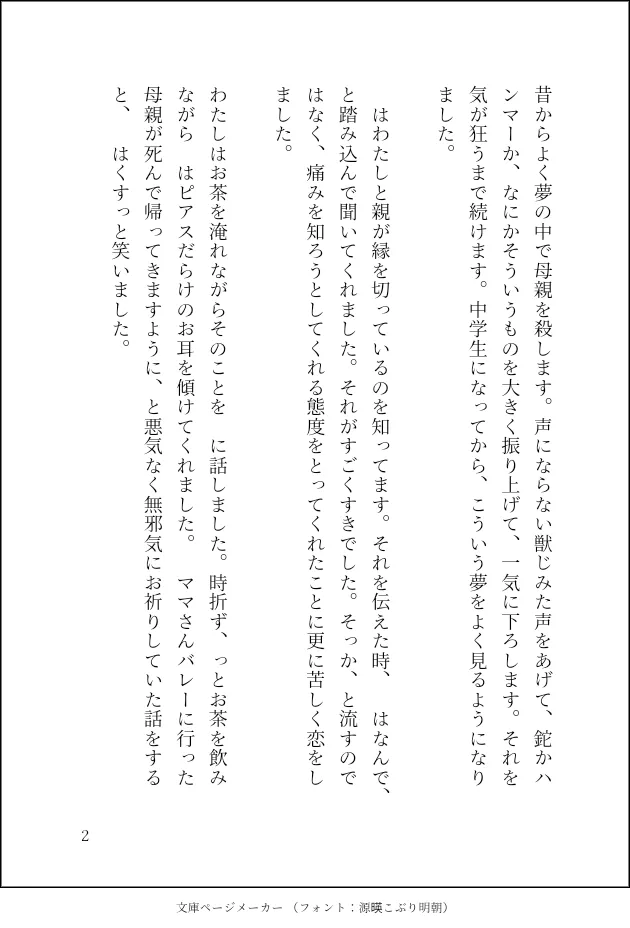 昔からよく夢の中で母親を殺します。声にならない獣じみた声をあげて、鉈かハ
ンマーか、なにかそういうものを大きく振り上げて、一気に下ろします。それを
気が狂うまで続けます。中学生になってから、こういう夢をよく見るようになり
ました。
　はわたしと親が縁を切っているのを知ってます。それを伝えた時、　はなんで、
と踏み込んで聞いてくれました。それがすごくすきでした。そっか、と流すので
はなく、痛みを知ろうとしてくれる態度をとってくれたことに更に苦しく恋をし
ました。
わたしはお茶を淹れながらそのことを　に話しました。時折ず、っとお茶を飲み
ながら　はピアスだらけのお耳を傾けてくれました。　ママさんバレーに行った
母親が死んで帰ってきますように、と悪気なく無邪気にお祈りしていた話をする
と、　はくすっと笑いました。
2
文庫ページメーカー （フォント：源暎こぶり明朝）